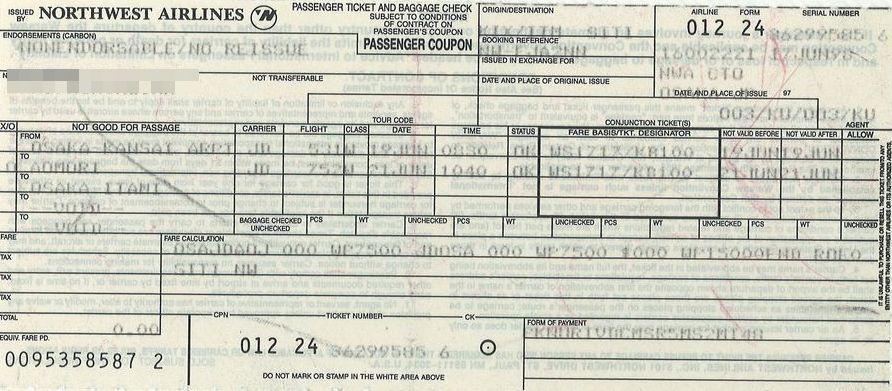 ISSUED BY NORTHWEST AIRLINES
PASSENGER TICKET AND BAGGAGE CHECK
SUBJECT TO CONDITIONS
OF CONTRACT ON
PASSENGER'S COUPON
PASSENGER COUPON
ORIGIN/DESTINATION
SITI
BOOKING REFERENCE
ISSUED IN EXCHANGE FOR
DATE AND PLACE OF ORIGINAL ISSUE
AIRLINE FORM SERIAL NUMBER
012 24 86299585 6
16002221 17JUN98
NWA CTO
DATE AND PLACE OF ISSUE 97
003/KU/003/KU
AGENT
ENDORSEMENTS (CARBON)
NONENDORSABLE/NO REISSUE
NOT TRANSFERABLE
TOUR CODE
CONJUNCTION TICKET(S)
X/O NOT GOOD FOR PASSAGE CARRIER FLIGHT CLASS DATE TIME STATUS FARE BASIS/TKT. DESIGNATOR NOT VALID BEFORE NOT VALID AFTER ALLOW
FROM OSAKA KANSAI ARPT JD 531W 19JUN 0830 OK WS1717/KB100 19JUN19JUN
TO AOMORI JD 752W 21JUN 1040 OK WS1717/KB100 21JUN21JUN
TO OSAKA ITAMI
TO VOID
TO VOID
BAGGAGE CHECKED UNCHECKED PCS WT UNCHECKED PCS WT UNCHECKED PCS WT UNCHECKED PCS WT UNCHECKED
FARE
FARE CALCULATION
000 WP7500 000 WP7500 WP15000END
SITI NW
TAX
TAX
TAX
TOTAL
0.00
EQUIV. FARE PD.
0095358587 2
CPN TICKET NUMBER CK
012 24 86299585 6
DO NOT MARK OR STAMP IN THE WHITE AREA ABOVE
FORM OF PAYMENT
IT IS UNLAWFUL TO PURCHASE OR RESELL THIS TICKET FROM/TO ANY
ENTITY OTHER THAN NORTHWEST AIRLINES OR ITS AUTHORIZED AGENTS.